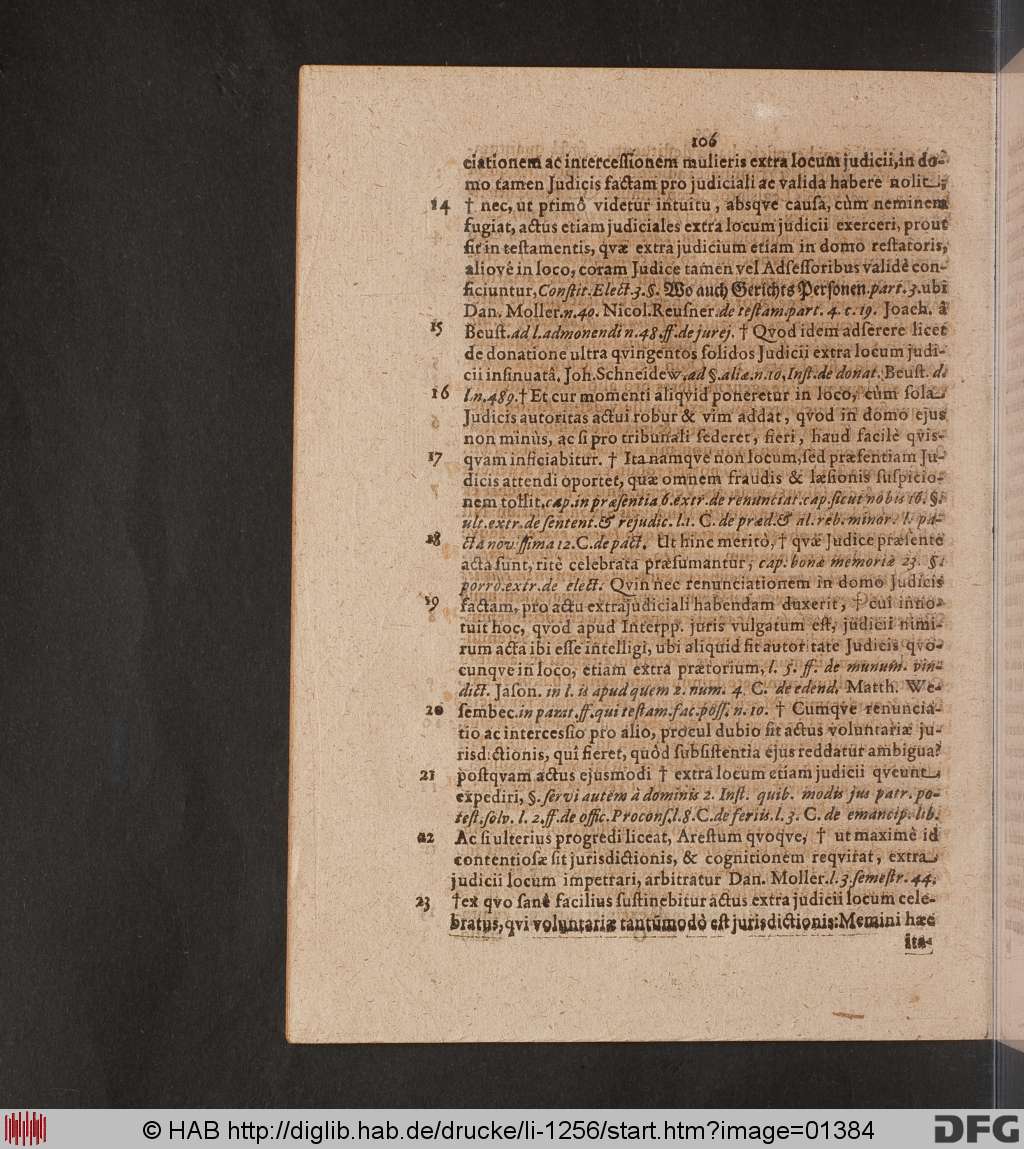 106
ciationem ac intercessionem mulieris extra locum judicii, in do-
mo tamen Judicis factam pro judiciali ac valida habere nolit,
14 † nec, ut primô videtur intuitu, absqve causa, cùm neminem
fugiat, actus etiam judiciales extra locum judicii exerceri, prout
fit in testamentis, qvæ extra judicium etiam in domo testatoris,
aliovè in loco, coram Judice tamen vel Adsessoribus validè con-
ficiuntur, Constit. Elect. 3. §. Wo auch Gerichts Personen. part. 3. ubi
Dan. Moller. n. 40. Nicol. Reusner. de testam. part. 4. c. 19. Joach. â
15 Beust. ad l. admonendi n. 48. ff. de jurej. † Qvod idem adserere licet
de donatione ultra qvingentos solidos Judicii extra locum judi-
cii insinuatâ. Joh. Schneidew. ad §. aliæ. n. 10. Inst. de donat. Beust. d.
16 l. n. 489. † Et cur momenti aliqvid poneretur in loco, cùm sola
Judicis autoritas actui robur & vim addat, qvod in domo ejus
non minùs, ac si pro tribunali sederet, fieri, haud facilè qvis-
17 qvam inficiabitur. † Ita namqve non locum, sed præsentiam Ju-
dicis attendi oportet, quæ omnem fraudis & læsionis suspicio-
nem tollit. cap. in præsentia 6. extr. de renunciat. cap. sicut nobis 16. §.
ult. extr. de sentent. & rejudic. l. 1. C. de præd. & al. reb. minor. l. pa-
18 cta novissima 12. C. de pact. Ut hinc meritò, † qvæ Judice præsente
acta sunt, ritè celebrata præsumantur, cap. bonæ memoriæ 23. §.
porrò. extr. de elect. Qvin nec renunciationem in domo Judicis
19 factam, pro actu extrajudiciali habendam duxerit, † cui inno-
tuit hoc, qvod apud Interpp. juris vulgatum est, judicii nimi-
rum acta ibi esse intelligi, ubi aliquid fit autoritate Judicis qvo-
cunqve in loco, etiam extra prætorium, l. 5. ff. de munum. vin-
dict. Jason. in l. is apud quem 2. num. 4. C. de edend. Matth. We-
20 sembec. in parat. ff. qui testam. fac. poss. n. 10. † Cumqve renuncia-
tio ac intercessio pro alio, procul dubio sit actus voluntariæ ju-
risdictionis, qui fieret, quòd subsistentia ejus reddatur ambigua?
21 postqvam actus ejusmodi † extra locum etiam judicii qveunt
expediri, §. servi autèm à dominis 2. Inst. quib. modis jus patr. po-
test. solv. l. 2. ff. de offic. Procons. l. 8. C. de feriis. l. 3. C. de emancip. lib.
22 Ac si ulterius progredi liceat, Arestum qvoqve, † ut maximè id
contentiosæ sit jurisdictionis, & cognitionem reqvirat, extra
judicii locum impetrari, arbitratur Dan. Moller. l. 3. semestr. 44.
23 † ex qvo sanè facilius sustinebitur actus extra judicii locum cele-
bratus, qvi voluntariæ tantùmodò est jurisdictionis: Memini hæc
ita-
© HAB http://diglib.hab.de/drucke/li-1256/start.htm?image=01384
DFG